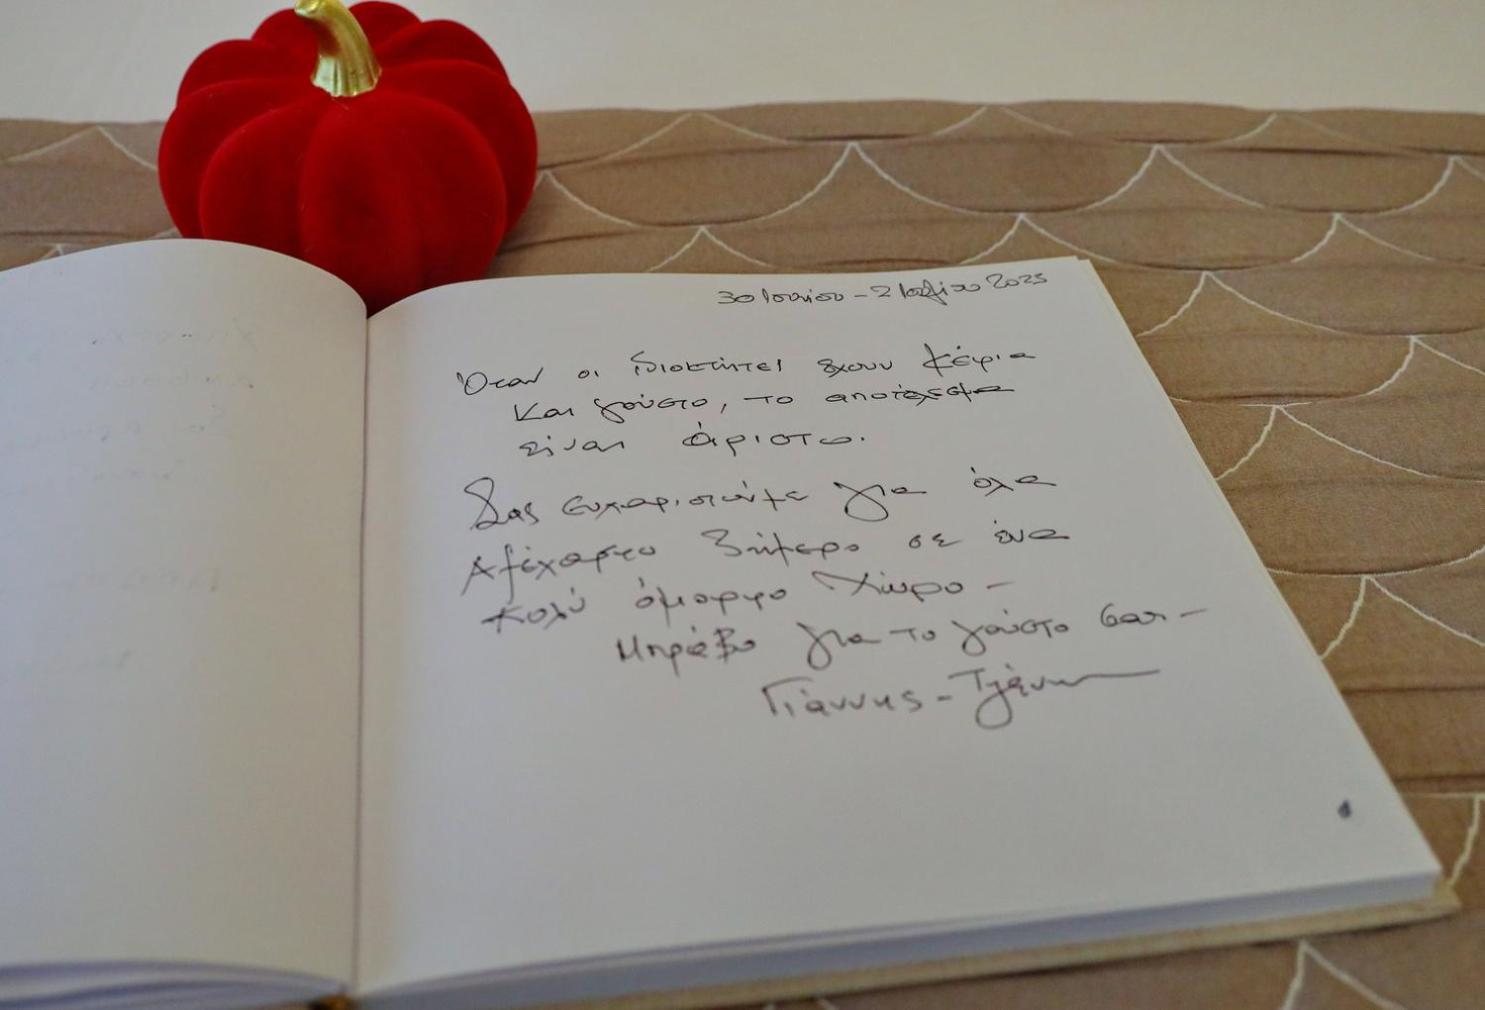 30 Ιουνίου - 2 Ιουλίου 2023
Όταν οι ιδιοκτήτες έχουν μεράκια
και γούστο, το αποτέλεσμα
είναι άριστο.
Σας ευχαριστούμε για όλα
Αξέχαστο 3ήμερο σε ένα
πολύ όμορφο χώρο -
Μπράβο για το γούστο σας -
Γιάννης -